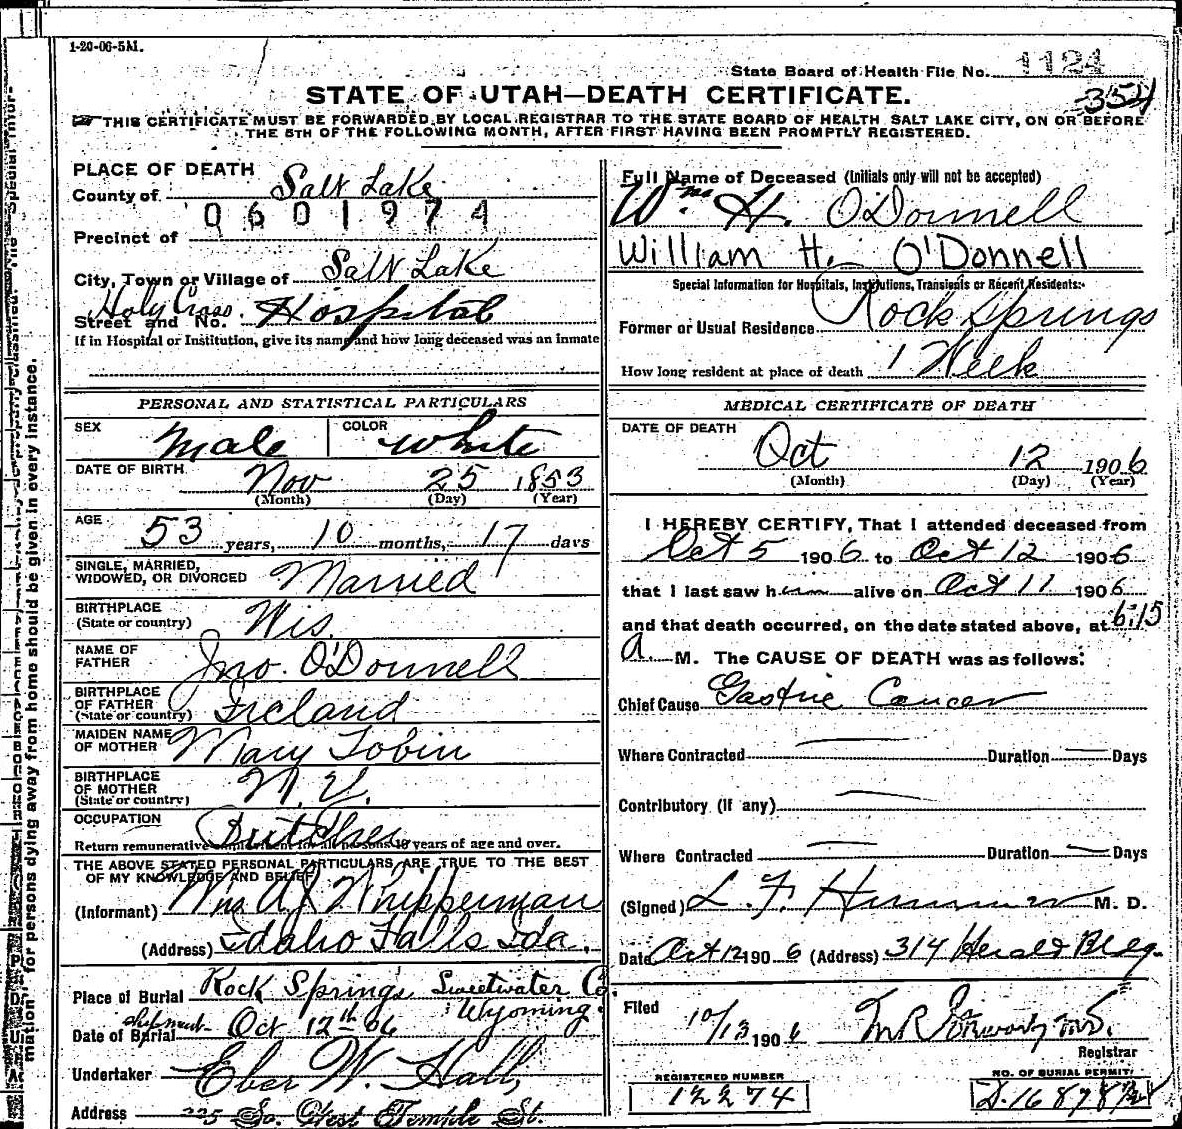 1-20-06-5M.
State Board of Health File No. 1124
354
STATE OF UTAH—DEATH CERTIFICATE.
THIS CERTIFICATE MUST BE FORWARDED BY LOCAL REGISTRAR TO THE STATE BOARD OF HEALTH SALT LAKE CITY, ON OR BEFORE
THE 5TH OF THE FOLLOWING MONTH, AFTER FIRST HAVING BEEN PROMPTLY REGISTERED.
PLACE OF DEATH
County of Salt Lake
0601974
Precinct of
City, Town or Village of Salt Lake
Street and No. Holy Cross Hospital
If in Hospital or Institution, give its name and how long deceased was an inmate
Full Name of Deceased (Initials only will not be accepted)
Wm. H. O'Donnell
William H. O'Donnell
Special Information for Hospitals, Institutions, Transients or Recent Residents:
Former or Usual Residence Rock Springs
How long resident at place of death 1 Week
PERSONAL AND STATISTICAL PARTICULARS
SEX Male COLOR White
DATE OF BIRTH Nov 25 1853
(Month) (Day) (Year)
AGE 53 years, 10 months, 17 days
SINGLE, MARRIED,
WIDOWED, OR DIVORCED Married
BIRTHPLACE
(State or country) Wis.
NAME OF
FATHER Jno. O'Donnell
BIRTHPLACE
OF FATHER
(State or country) Ireland
MAIDEN NAME
OF MOTHER Mary Tobin
BIRTHPLACE
OF MOTHER
(State or country) N.Y.
OCCUPATION Butcher
Return remunerative employment for all persons 10 years of age and over.
THE ABOVE STATED PERSONAL PARTICULARS ARE TRUE TO THE BEST
OF MY KNOWLEDGE AND BELIEF
(Informant) A J Whipperman
(Address) Idaho Falls Ida.
Place of Burial Rock Springs Sweetwater Co
Wyoming
Date of Burial shipment Oct 12th 06
Undertaker Eber W. Hall,
Address 225 So. West Temple St.
MEDICAL CERTIFICATE OF DEATH
DATE OF DEATH
Oct 12 1906
(Month) (Day) (Year)
I HEREBY CERTIFY, That I attended deceased from
Oct 5 1906 to Oct 12 1906
that I last saw him alive on Oct 11 1906
and that death occurred, on the date stated above, at 6:15
a. M. The CAUSE OF DEATH was as follows:
Chief Cause Gastric Cancer
Where Contracted Duration Days
Contributory (if any)
Where Contracted Duration Days
(Signed) L. F. M. D.
Date Oct 12 1906 (Address) 314 Herald Bldg.
Filed
10/13 1906
Registrar
REGISTERED NUMBER
12274
NO. OF BURIAL PERMIT
mation for persons dying away from home should be given in every instance.